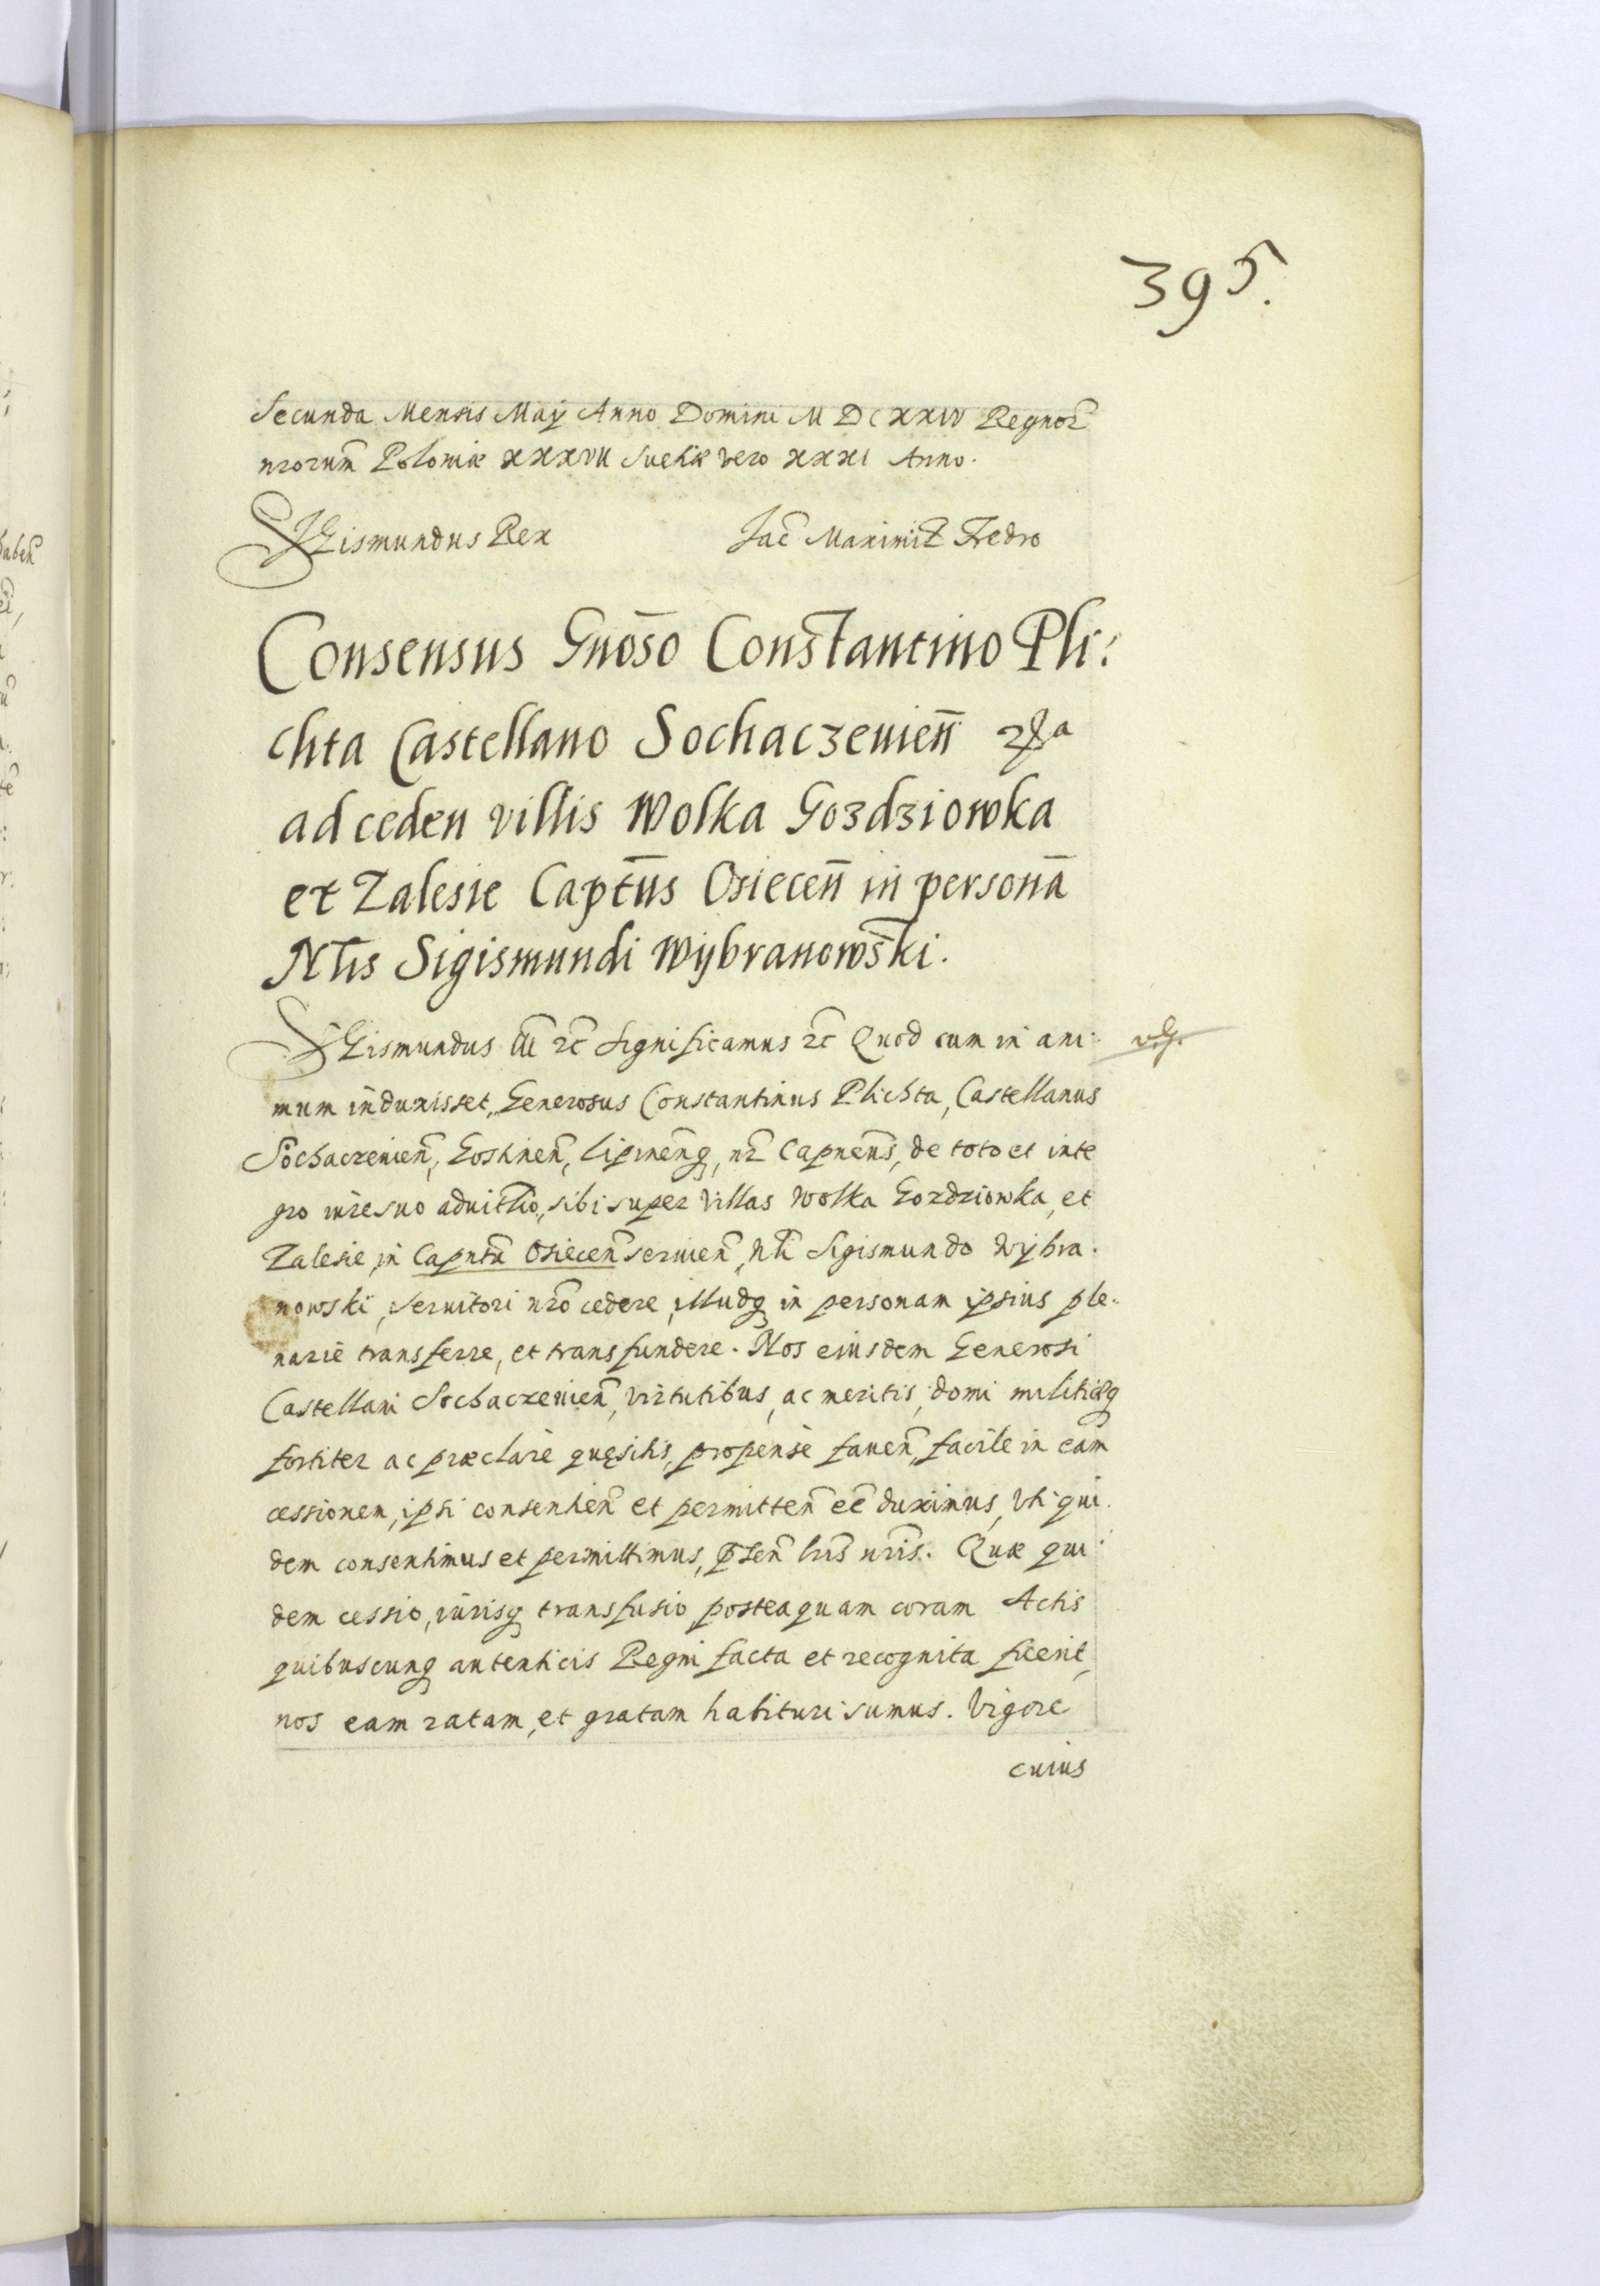 395.
Secunda Mensis Maÿ Anno Domini M DC XXIV Regnor̃
nrorum̃ Poloniæ XXXVII Suetiæ vero XXXI Anno.
Sigismundus Rex Jac̃ Maximil̃ Fredro
Consensus Gnõso Constantino Pli:
chta Castellano Sochaczeuieñ
ad ceden villis Wolka Gozdziowka
et Zalesie Captũs Osieceñ in personã
Nlis Sigismundi Wÿbranowski.
Sigismundus III rc̃ Significamus rc̃ Quod cum in ani:
mum induxisset, Generosus Constantinus Plichta, Castellanus
Sochaczeuieñ, Gostineñ, Lipineñq, nr̃ Capneũs, de toto et inte
gro iure suo aduitl̃io, sibi super villas Wolka Gozdziowka, et
Zalesie, in Capntũ Osieceñ seruieñ, Nli Sigismundo Wÿbra.
nowski, seruitori nrõ cedere, illudq in personam ipsius ple..
narié transferre, et transfundere. Nos eiusdem Generosi
Castellani Sochaczeuieñ, virtutibus, ac meritis, domi militiæq
fortiter ac præclarè quęsitis, propensè faueñ, facile in eam̃
cessionem, ipsi consentieñ et permitteñ eẽ duximus, Vti qui.
dem consentimus et permittimus, p̃señ lrĩs nrĩs. Quæ qui:
dem cessio, iurisq transfusio posteaquam coram Actis
quibuscunq autenticis Regni facta et recognita fuerit,
nos eam ratam, et gratam habituri sumus. Vigore
cuius